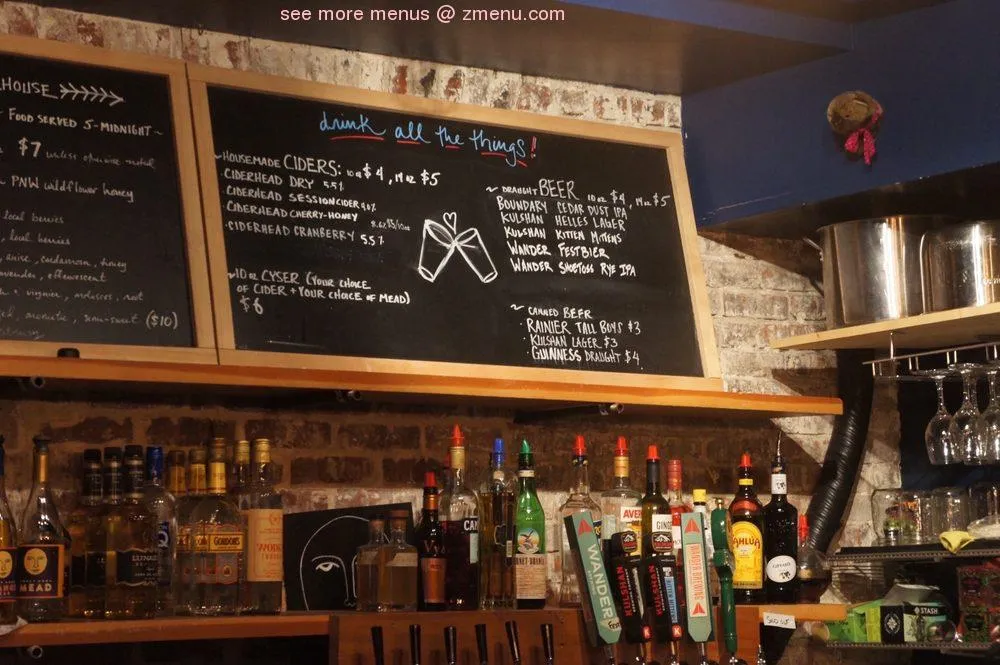 see more menus @ zmenu.com
HOUSE
~ FOOD SERVED 5-MIDNIGHT ~
$7 unless otherwise noted
~ PNW wildflower honey
local berries
local berries
anise, cardamom, honey
lavender, effervescent
+ viognier, molasses, root
aromatic, semi-sweet ($10)
drink all the things!
~HOUSEMADE CIDERS: 10oz $4, 14oz $5
·CIDERHEAD DRY 5.5%
·CIDERHEAD SESSION CIDER 4.0%
·CIDERHEAD CHERRY-HONEY 8.6% $5/10oz
·CIDERHEAD CRANBERRY 5.5%
~10oz CYSER (YOUR CHOICE
OF CIDER + YOUR CHOICE OF MEAD)
$6
~ DRAUGHT BEER 10oz $4, 14oz $5
BOUNDARY CEDAR DUST IPA
KULSHAN HELLES LAGER
KULSHAN KITTEN MITTENS
WANDER FESTBIER
WANDER SHOETOSS RYE IPA
~ CANNED BEER
·RAINIER TALL BOYS $3
·KULSHAN LAGER $3
·GUINNESS DRAUGHT $4
MEAD
GORDON'S
WANDER
KULSHAN
KULSHAN
WANDER BREWING
KAHLUA
STASH